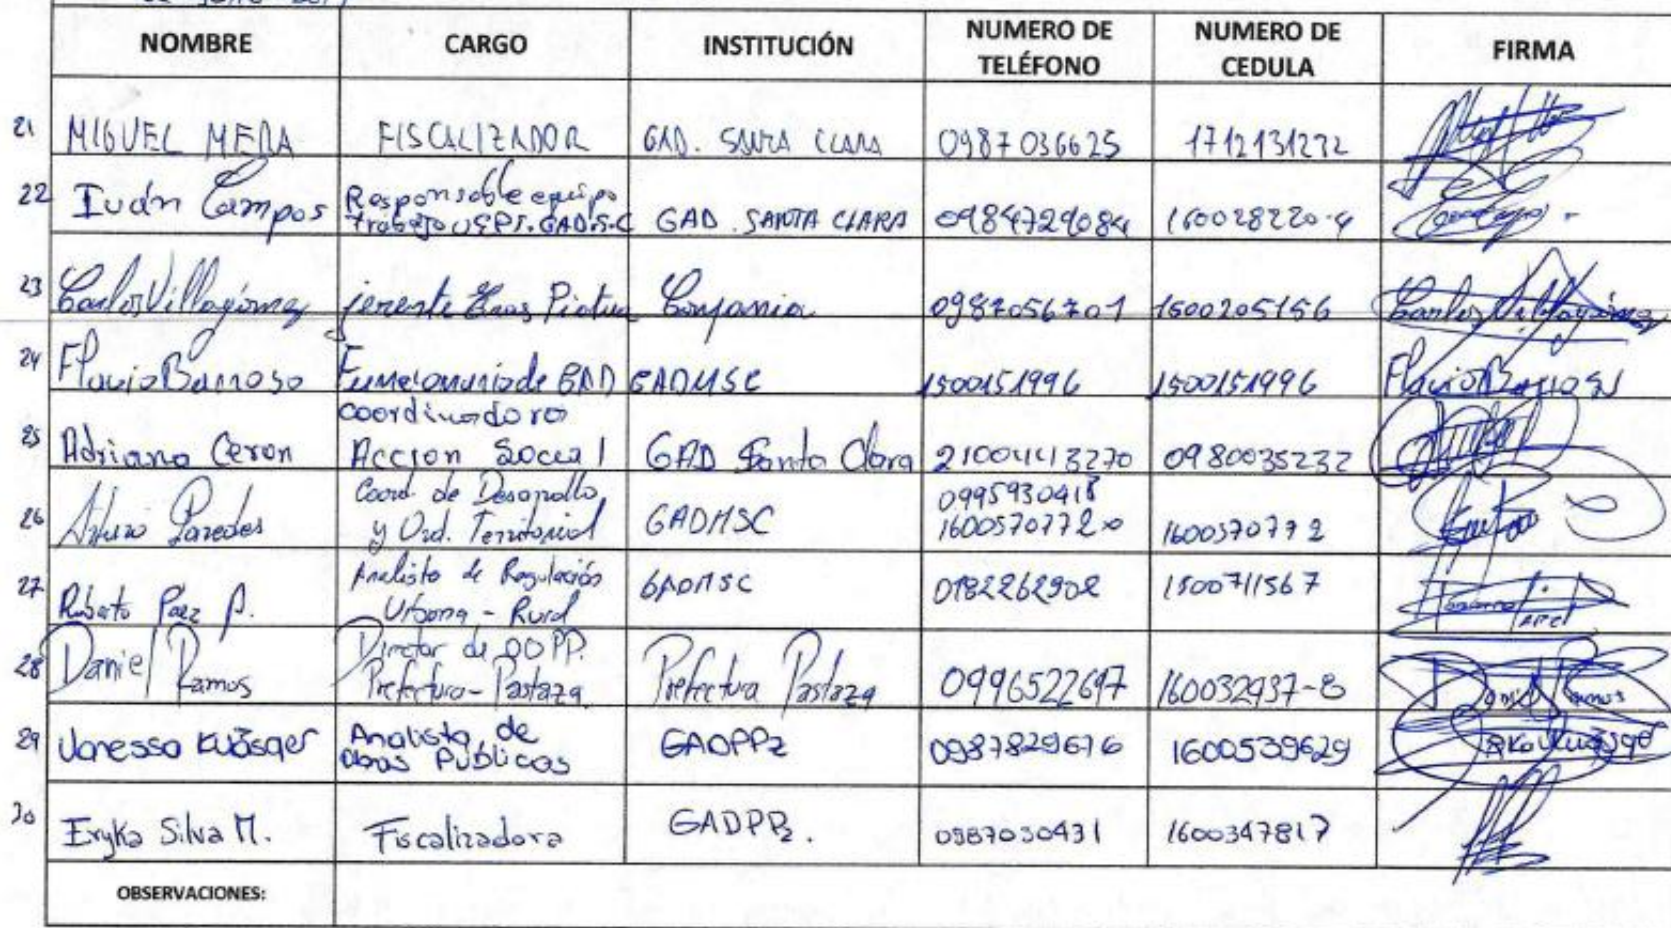 NOMBRE CARGO INSTITUCIÓN NUMERO DE TELÉFONO NUMERO DE CEDULA FIRMA
21 MIGUEL MERA FISCALIZADOR GAD. SANTA CLARA 0987036625 1712131272
22 Iván Campos Responsable equipo trabajo GAD. SANTA CLARA 0984729084 160028220-4
23 Carlos Villagómez jerente Piatua Compania 0987056701 1600205156 Carlos Villagómez
24 Flavio Barroso Funcionario de GAD GADMSC 1500151996 1500151996 Flavio Barroso
25 Adriana Ceron coordinadora Accion Social GAD Santa Clara 0980035232
26 Arturo Paredes Coord. de Desarrollo y Ord. Territorial GADMSC 0995930418 1600570772 1600570772
27 Roberto Paez P. Analista de Regulación Urbana - Rural GADMSC 1500711567
28 Daniel Ramos Director de OOPP. Prefectura - Pastaza Prefectura Pastaza 0996522697 160032937-8
29 Vanessa Analista de Obras Publicos GADPPz 0987829676 1600539629
30 Eryka Silva M. Fiscalizadora GADPPz. 0987030431 1600347817
OBSERVACIONES: